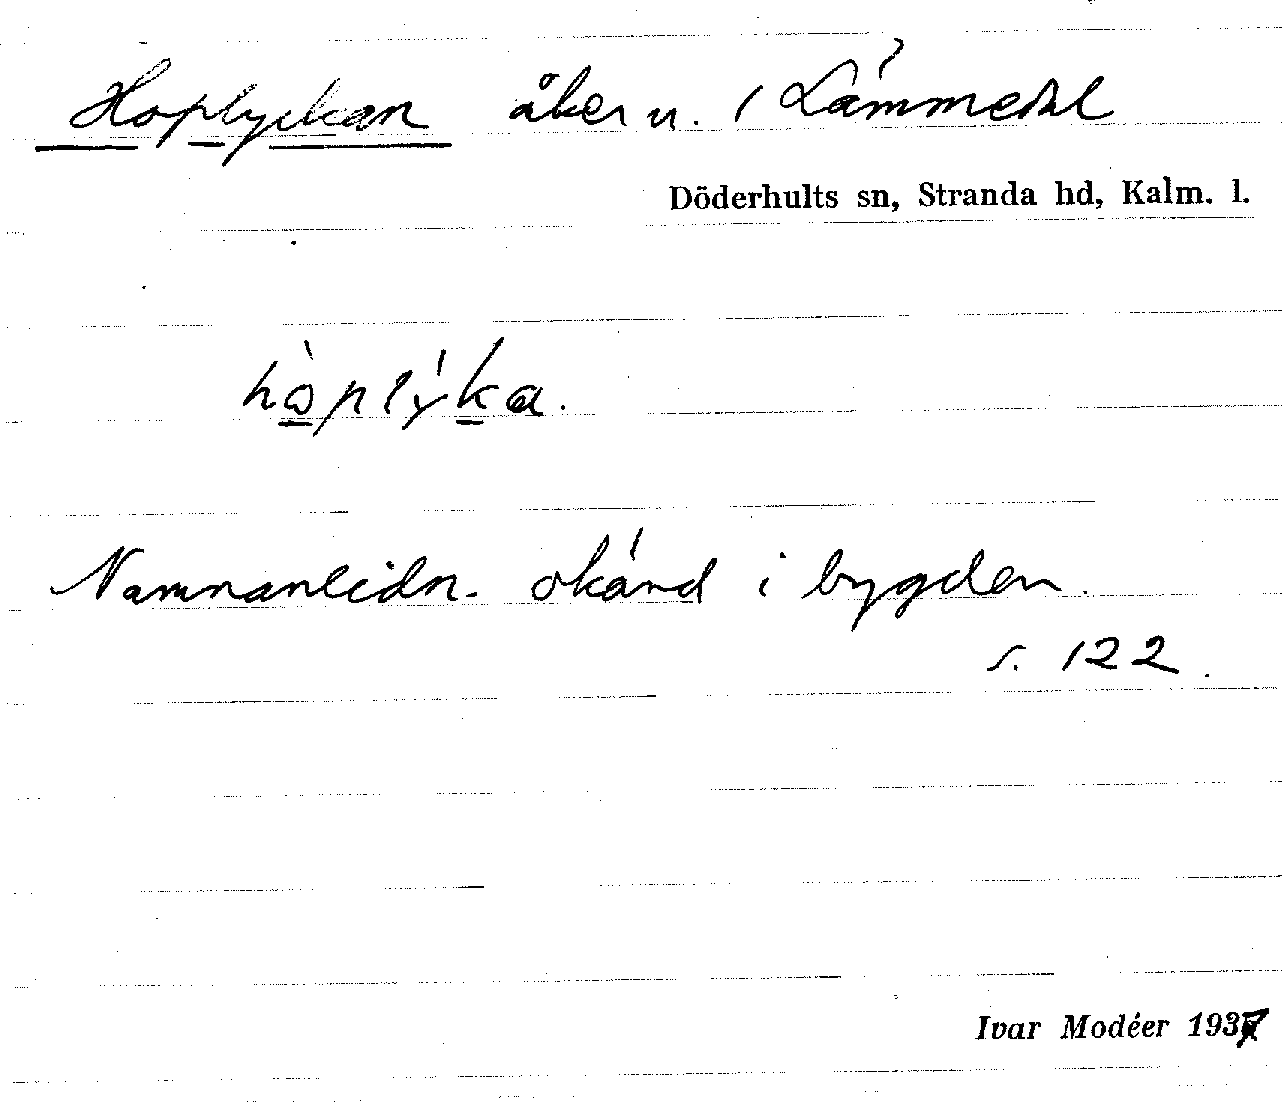 Hoplyckan åker u. / Lämmedal
Döderhults sn, Stranda hd, Kalm. l.
hòplýka.
Namnanledn. okänd i bygden.
s. 122.
Ivar Modéer 1937